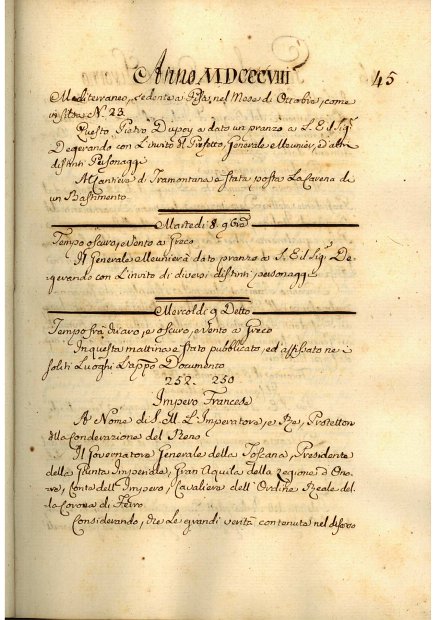 Anno MDCCCVIII 45
Mediterraneo, sedente a Pisa, nel Mese di Ottobre, come
in filza N. 23
Questo Pietro Dupoy a dato un pranzo a S. E. il Sig.
Degerando con L'invito del Prefetto, Generale Meunier, e altri
distinti Personaggi
Al Cantiere di Tramontana è stata posta La Carena di
un Bastimento
Martedi 8. 9bre
Tempo oscuro, e vento a Greco
Il Generale Meunier à dato pranzo a S. E. il Sig. De-
gerando con L'invito di diversi distinti personaggi
Mercoldi 9 Detto
Tempo frà chiaro, e oscuro, e vento a Greco
In questa mattina è stato pubblicato, ed affissato nei
soliti Luoghi L'appo Documento
252. 250
Impero Francese
A Nome di S. M. L'Imperatore, e Re, Protettor
della Confederazione del Reno
Il Governatore Generale della Toscana, Presidente
della Giunta Imperiale, Gran Aquila della Legione d'Ono-
re, Conte dell'Impero, Cavaliere dell'Ordine Reale del-
la Corona di Ferro
Considerando, che Le grandi verità contenute nel discorso